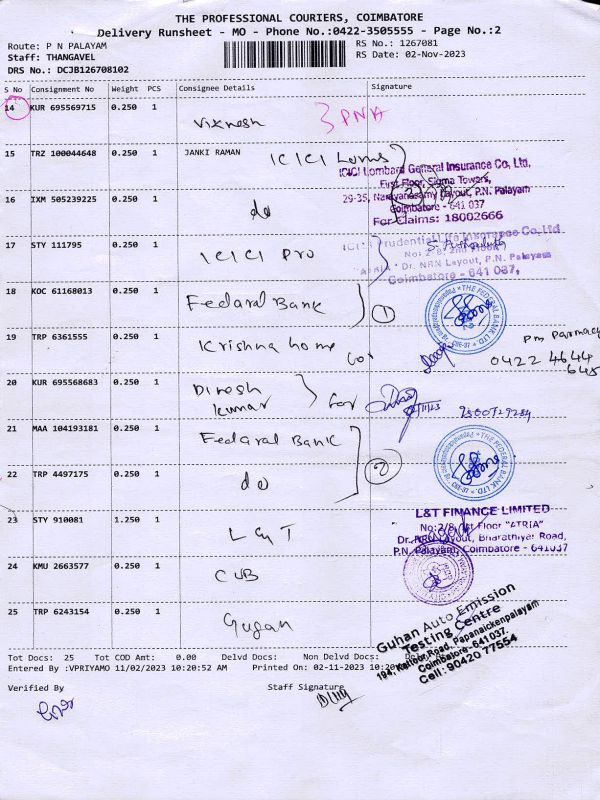 THE PROFESSIONAL COURIERS, COIMBATORE
Delivery Runsheet - MO - Phone No.:0422-3505555 - Page No.:2
Route: P N PALAYAM
RS No.: 1267081
Staff: THANGAVEL
RS Date: 02-Nov-2023
DRS No.: DCJB126708102
S No Consignment No Weight PCS Consignee Details Signature
14 KUR 695569715 0.250 1 Viknesh PNA
15 TRZ 100044648 0.250 1 JANKI RAMAN ICICI Loms
ICICI Lombard General Insurance Co, Ltd,
First Floor, Sigma Towers,
16 IXM 505239225 0.250 1 do
29-35, Narayanasamy Layout, P.N. Palayam
Coimbatore - 641 037
For Claims: 18002666
17 STY 111795 0.250 1 ICICI Pro
ICICI Prudential Life Insurance Co Ltd
No: 2-8, 2nd Floor
"ATRIA" Dr. NRN Layout, P.N. Palayam
Coimbatore - 641 037,
18 KOC 61168013 0.250 1 Fedaral Bank 1
THE FEDERAL BANK LTD
19 TRP 6361555 0.250 1 Krishna home
Pm Parmacy
0422 4644
645
20 KUR 695568683 0.250 1 Dinesh kumar for
21 MAA 104193181 0.250 1 Fedaral Bank
THE FEDERAL BANK LTD
2
22 TRP 4497175 0.250 1 do
23 STY 910081 1.250 1 L & T
L&T FINANCE LIMITED
No:2/8, 1st Floor "ATRIA"
Dr. NRN Layout, Bharathiyar Road,
P.N. Palayam, Coimbatore - 641037
24 KMU 2663577 0.250 1 CUB
25 TRP 6243154 0.250 1 Gugan
Guhan Auto Emission
Testing Centre
194, Kalloor Road, Papanaickenpalayam
Coimbatore-641 037.
Cell: 90420 77554
Tot Docs: 25 Tot COD Amt: 0.00 Delvd Docs: Non Delvd Docs:
Entered By :VPRIYAMO 11/02/2023 10:20:52 AM Printed On: 02-11-2023 10:20
Verified By Staff Signature